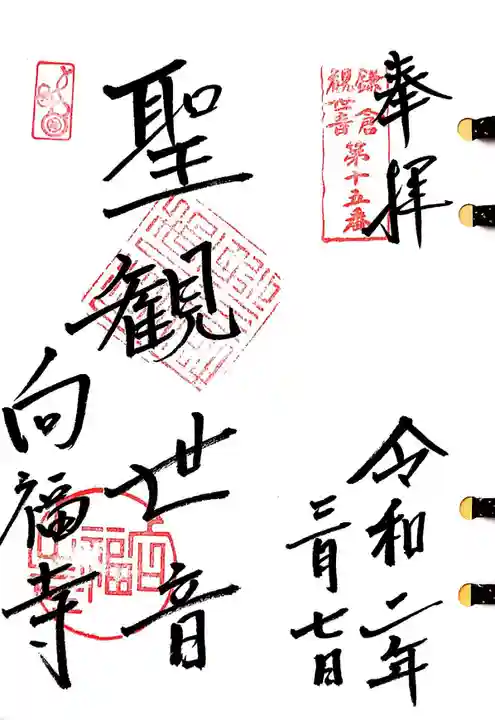 奉拝
鎌倉
観世音
第十五番
令和二年
三月七日
聖観世音
向福寺